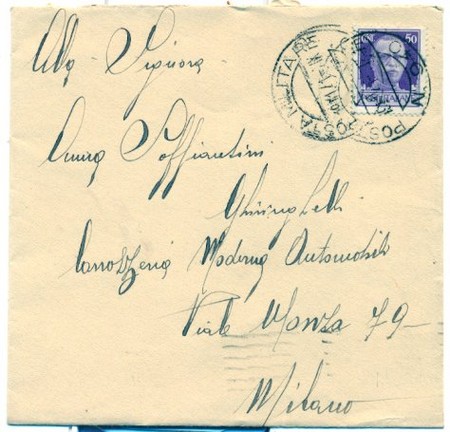 Alla Signora
Anna Soffiantini
Ghiringhelli
Carrozzeria Moderna Automobili
Viale Monza 79
Milano
POSTA MILITARE
50